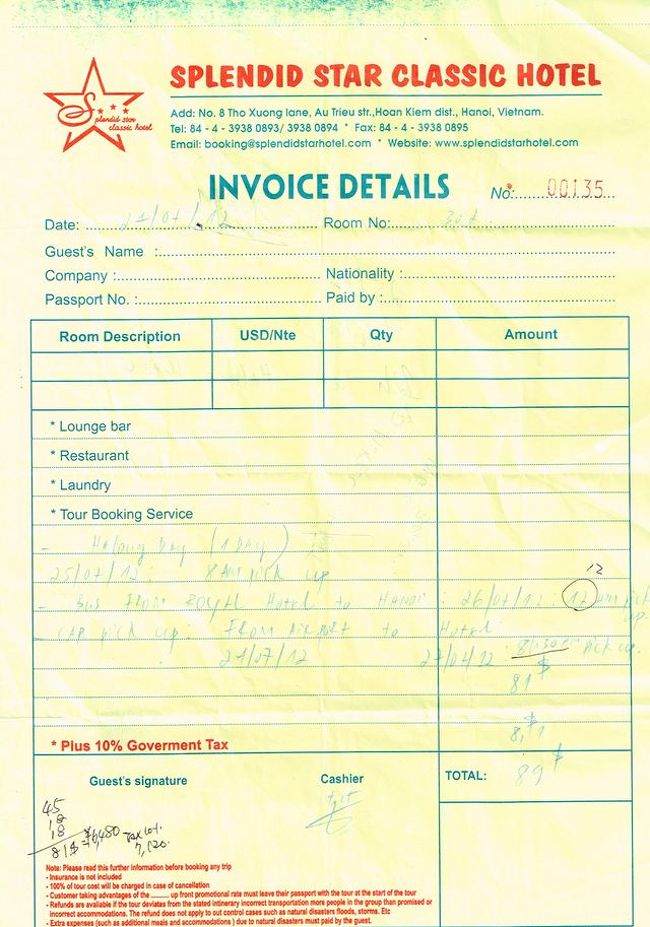 SPLENDID STAR CLASSIC HOTEL
Splendid star
classic hotel
Add: No. 8 Tho Xuong lane, Au Trieu str.,Hoan Kiem dist., Hanoi, Vietnam.
Tel: 84 - 4 - 3938 0893/ 3938 0894 * Fax: 84 - 4 - 3938 0895
Email: booking@splendidstarhotel.com * Website: www.splendidstarhotel.com
INVOICE DETAILS
No: 00135
Date: Room No:
Guest's Name :
Company : Nationality :
Passport No. : Paid by :
Room Description USD/Nte Qty Amount
* Lounge bar
* Restaurant
* Laundry
* Tour Booking Service
- Halong Bay (1 Day)
25/07/12: 8 AM pick up
12
- Bus From Hotel to Hanoi: 26/07/12: 12 pick up.
- CAR pick up: From Airport to Hotel
27/07/12 pick up.
81$
8,1$
* Plus 10% Goverment Tax
Guest's signature Cashier TOTAL: 89$
45
18
18
81$ = 6,480 Tax 10%
7,120.
Note: Please read this further information before booking any trip
- Insurance is not included
- 100% of tour cost will be charged in case of cancellation
- Customer taking advantages of the .......... up front promotional rate must leave their passport with the tour at the start of the tour
- Refunds are available if the tour deviates from the stated intinerary incorrect transportation more people in the group than promised or
incorrect accommodations. The refund does not apply to out control cases such as natural disasters floods, storms. Etc
- Extra expenses (such as additional meals and accommodations ) due to natural disasters must paid by the guest.